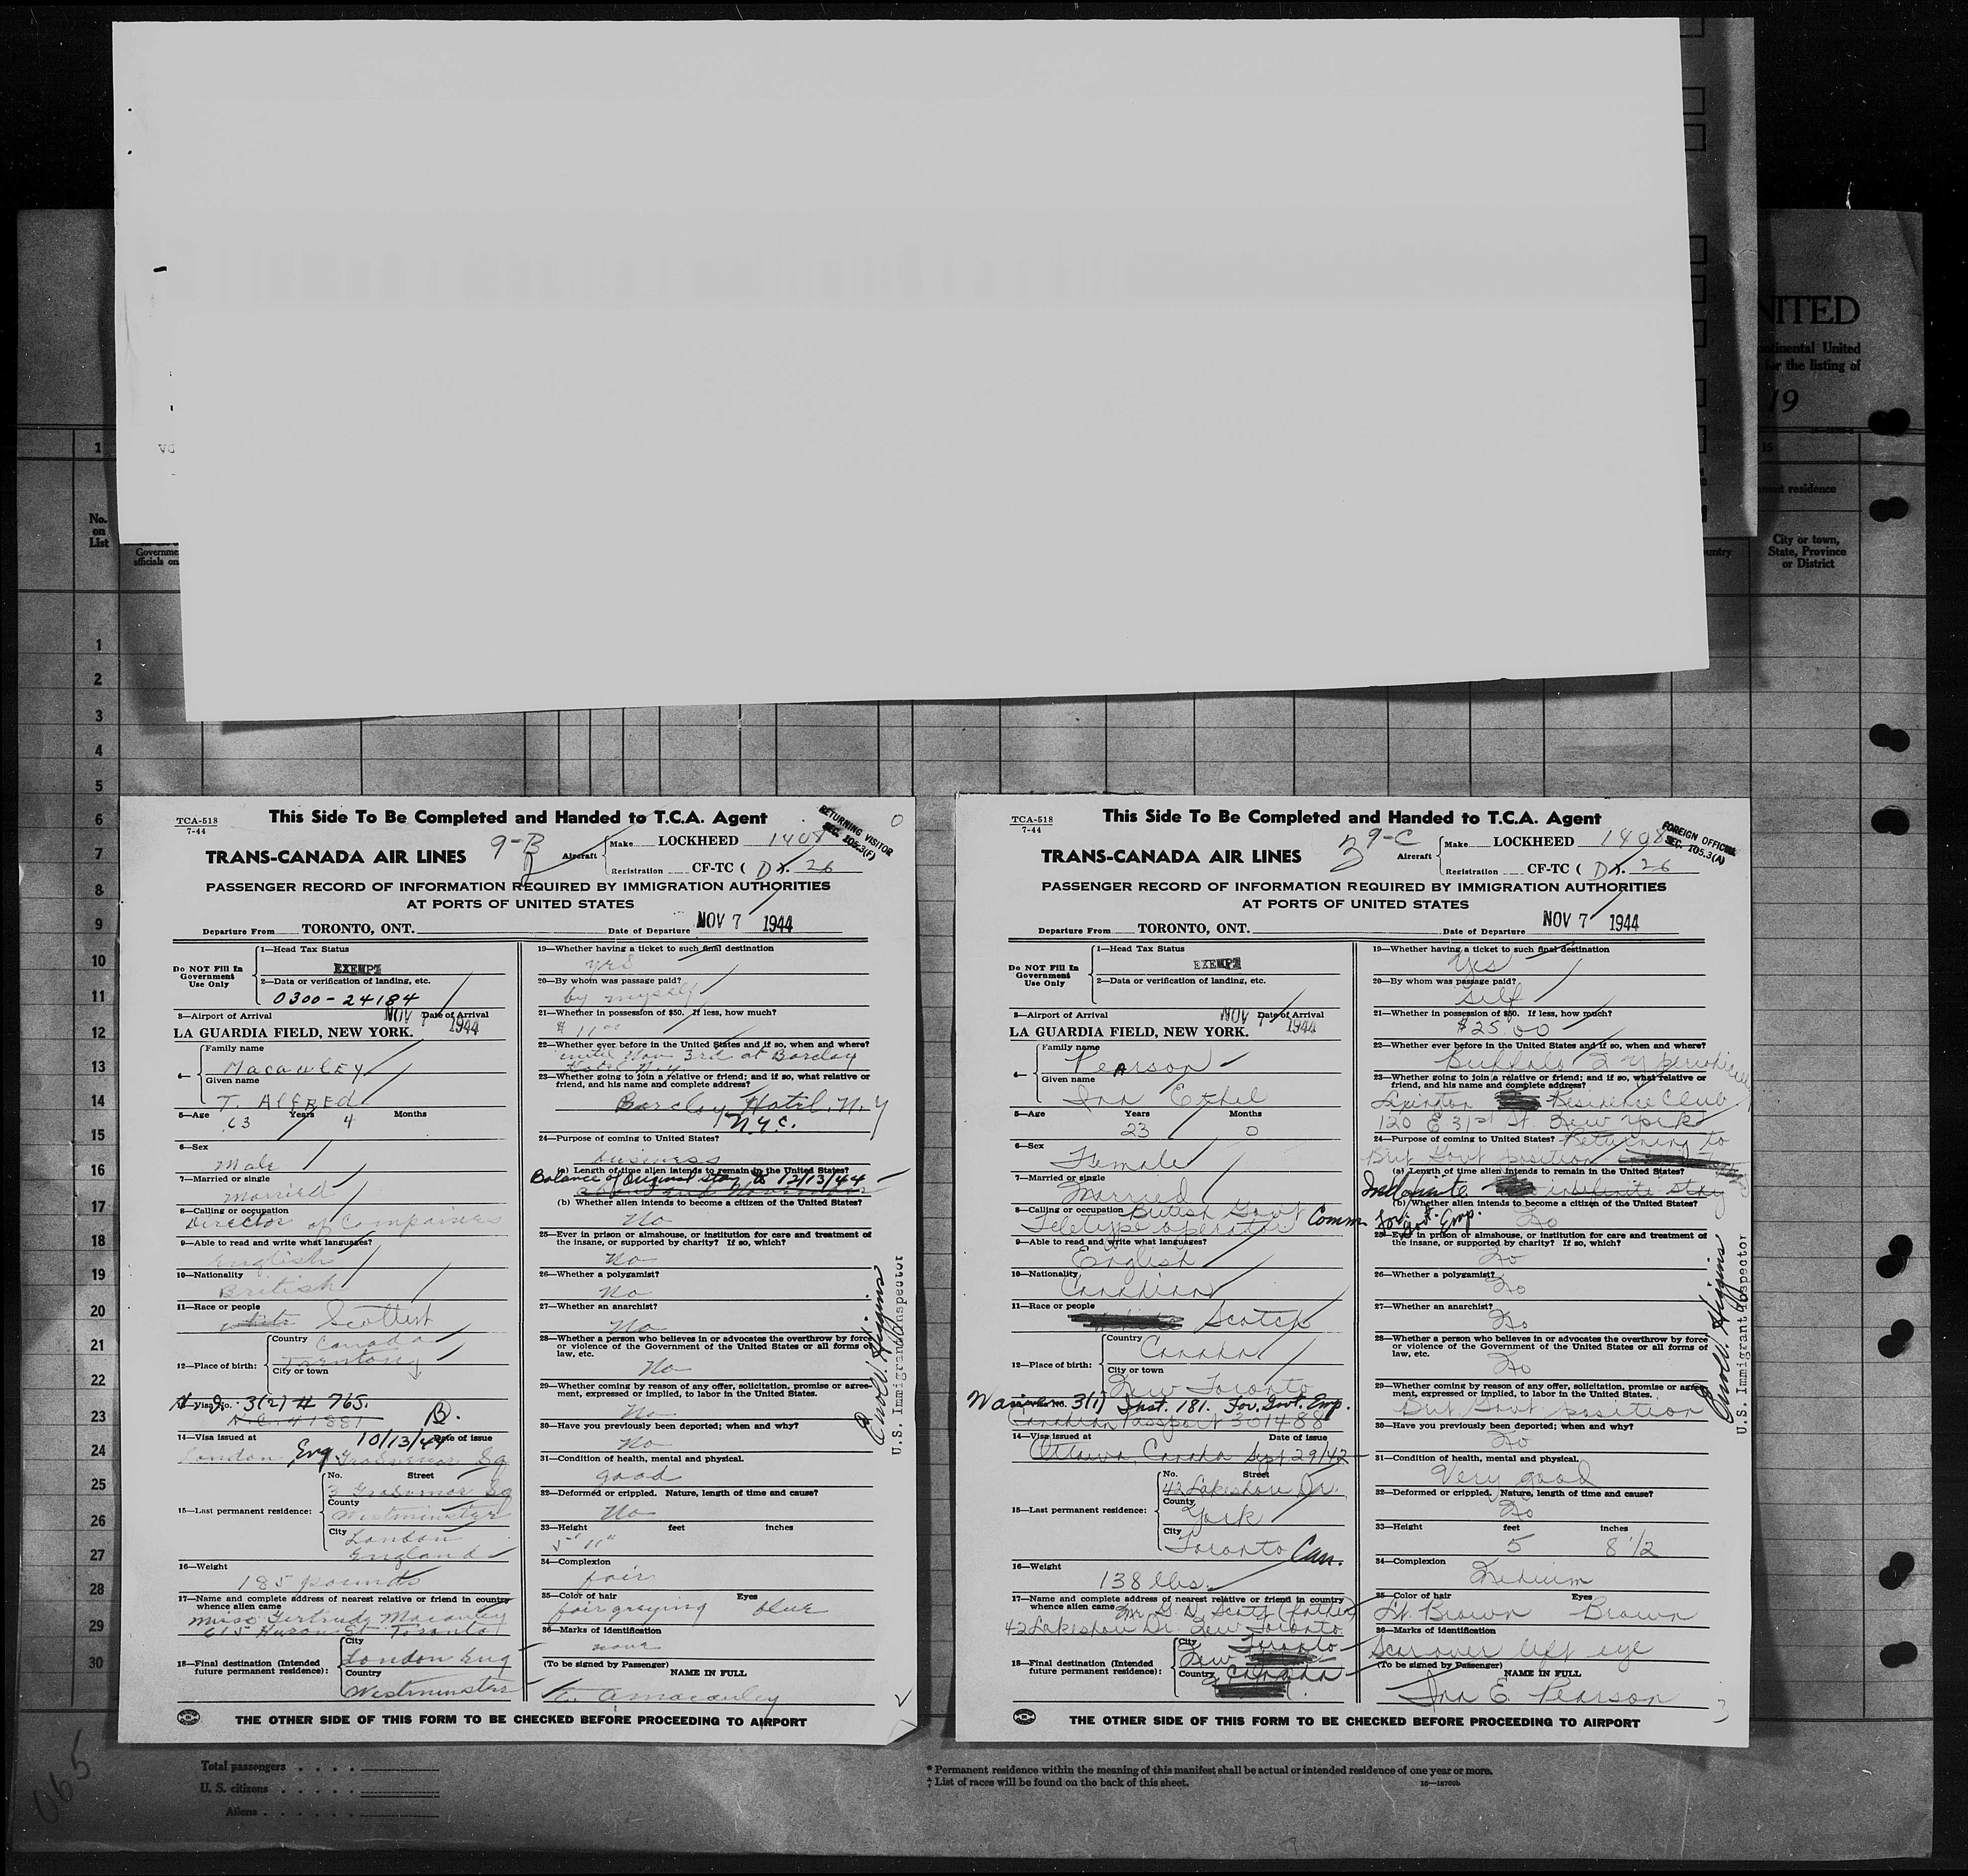 NITED
ntinental United
for the listing of
19
1
15
nent residence
No.
on
List
Governme
officials on
untry
City or town,
State, Province
or District
1
2
3
4
5
6
7
8
9
10
11
12
13
14
15
16
17
18
19
20
21
22
23
24
25
26
27
28
29
30
TCA-518
7-44
This Side To Be Completed and Handed to T.C.A. Agent
RETURNING VISITOR
SEC. 105.3(F)
0
9-B
TRANS-CANADA AIR LINES
Aircraft
Make LOCKHEED 1408
Registration CF-TC ( D X. 26
PASSENGER RECORD OF INFORMATION REQUIRED BY IMMIGRATION AUTHORITIES
AT PORTS OF UNITED STATES
Departure From TORONTO, ONT. Date of Departure NOV 7 1944
Do NOT Fill In
Government
Use Only
1—Head Tax Status
EXEMPT
2—Data or verification of landing, etc.
0300-24184
3—Airport of Arrival Date of Arrival
LA GUARDIA FIELD, NEW YORK. NOV 7 1944
4—
Family name
Macauley
Given name
T. Alfred
5—Age Years Months
63 4
6—Sex
Male
7—Married or single
Married
8—Calling or occupation
Director of Companies
9—Able to read and write what languages?
English
10—Nationality
British
11—Race or people
white Scottish
12—Place of birth:
Country
Canada
City or town
13—Visa No. 3(2) # 765.
B.
14—Visa issued at Date of issue
10/13/44
London Eng. Grosvenor Sq
15—Last permanent residence:
No. Street
3 Grosvenor Sq
County
Westminster
City
London
England
16—Weight
185 pounds
17—Name and complete address of nearest relative or friend in country
whence alien came
Miss Gertrude Macauley
615 Huron St Toronto
18—Final destination (Intended
future permanent residence):
City
London Eng
Country
Westminster
19—Whether having a ticket to such final destination
yes
20—By whom was passage paid?
by myself
21—Whether in possession of $50. If less, how much?
$ 11 00
22—Whether ever before in the United States and if so, when and where?
until Nov 3rd at Barclay
Hotel N.Y
23—Whether going to join a relative or friend; and if so, what relative or
friend, and his name and complete address?
Barclay Hotel. N.Y
N.Y.C.
24—Purpose of coming to United States?
business
(a) Length of time alien intends to remain in the United States?
Balance of Original Stay to 12/13/44
(b) Whether alien intends to become a citizen of the United States?
No
25—Ever in prison or almshouse, or institution for care and treatment of
the insane, or supported by charity? If so, which?
No
26—Whether a polygamist?
No
27—Whether an anarchist?
No
28—Whether a person who believes in or advocates the overthrow by force
or violence of the Government of the United States or all forms of
law, etc.
No
29—Whether coming by reason of any offer, solicitation, promise or agree-
ment, expressed or implied, to labor in the United States.
No
30—Have you previously been deported; when and why?
No
31—Condition of health, mental and physical.
good
32—Deformed or crippled. Nature, length of time and cause?
No
33—Height feet inches
5' 11"
34—Complexion
fair
35—Color of hair Eyes
fair greying blue
36—Marks of identification
none
(To be signed by Passenger) NAME IN FULL
T. A Macauley
U.S. Immigrant Inspector
THE OTHER SIDE OF THIS FORM TO BE CHECKED BEFORE PROCEEDING TO AIRPORT
TCA-518
7-44
This Side To Be Completed and Handed to T.C.A. Agent
FOREIGN OFFICIAL
SEC. 105.3(A)
9-C
TRANS-CANADA AIR LINES
Aircraft
Make LOCKHEED 1408
Registration CF-TC ( D X. 26
PASSENGER RECORD OF INFORMATION REQUIRED BY IMMIGRATION AUTHORITIES
AT PORTS OF UNITED STATES
Departure From TORONTO, ONT. Date of Departure NOV 7 1944
Do NOT Fill In
Government
Use Only
1—Head Tax Status
EXEMPT
2—Data or verification of landing, etc.
3—Airport of Arrival Date of Arrival
LA GUARDIA FIELD, NEW YORK. NOV 7 1944
4—
Family name
Pearson
Given name
Ina Ethel
5—Age Years Months
23 0
6—Sex
Female
7—Married or single
Married
8—Calling or occupation British Govt
Teletype operator Comm
9—Able to read and write what languages?
English
10—Nationality
Canadian
11—Race or people
Scotch
12—Place of birth:
Country
Canada
City or town
New Toronto
Waiver 3(1) Inst. 181. For. Govt. Emp.
Canadian Passport 301488
14—Visa issued at Date of issue
Ottawa, Canada Sept 29/42
15—Last permanent residence:
No. Street
42 Lakeshore Dr.
County
York
City
Toronto Can.
16—Weight
138 lbs.
17—Name and complete address of nearest relative or friend in country
whence alien came Mr. G. D. Scott (father)
42 Lakeshore Dr. New Toronto
18—Final destination (Intended
future permanent residence):
City Toronto
New
Country Canada
19—Whether having a ticket to such final destination
Yes
20—By whom was passage paid?
Self
21—Whether in possession of $50. If less, how much?
$25.00
22—Whether ever before in the United States and if so, when and where?
Buffalo N Y
23—Whether going to join a relative or friend; and if so, what relative or
friend, and his name and complete address?
Lexington Residence Club
120 E 31st St. New York
24—Purpose of coming to United States? Returning to
Brit Govt position
(a) Length of time alien intends to remain in the United States?
Indefinite indefinite stay
(b) Whether alien intends to become a citizen of the United States?
For. Govt. Emp. No
25—Ever in prison or almshouse, or institution for care and treatment of
the insane, or supported by charity? If so, which?
No
26—Whether a polygamist?
No
27—Whether an anarchist?
No
28—Whether a person who believes in or advocates the overthrow by force
or violence of the Government of the United States or all forms of
law, etc.
No
29—Whether coming by reason of any offer, solicitation, promise or agree-
ment, expressed or implied, to labor in the United States.
Brit Govt position
30—Have you previously been deported; when and why?
No
31—Condition of health, mental and physical.
Very good
32—Deformed or crippled. Nature, length of time and cause?
No
33—Height feet inches
5 8 1/2
34—Complexion
Medium
35—Color of hair Eyes
Lt. Brown Brown
36—Marks of identification
Scar over left eye
(To be signed by Passenger) NAME IN FULL
Ina E. Pearson
3
U.S. Immigrant Inspector
THE OTHER SIDE OF THIS FORM TO BE CHECKED BEFORE PROCEEDING TO AIRPORT
065
Total passengers
U. S. citizens
Aliens
* Permanent residence within the meaning of this manifest shall be actual or intended residence of one year or more.
† List of races will be found on the back of this sheet.
16—18700b